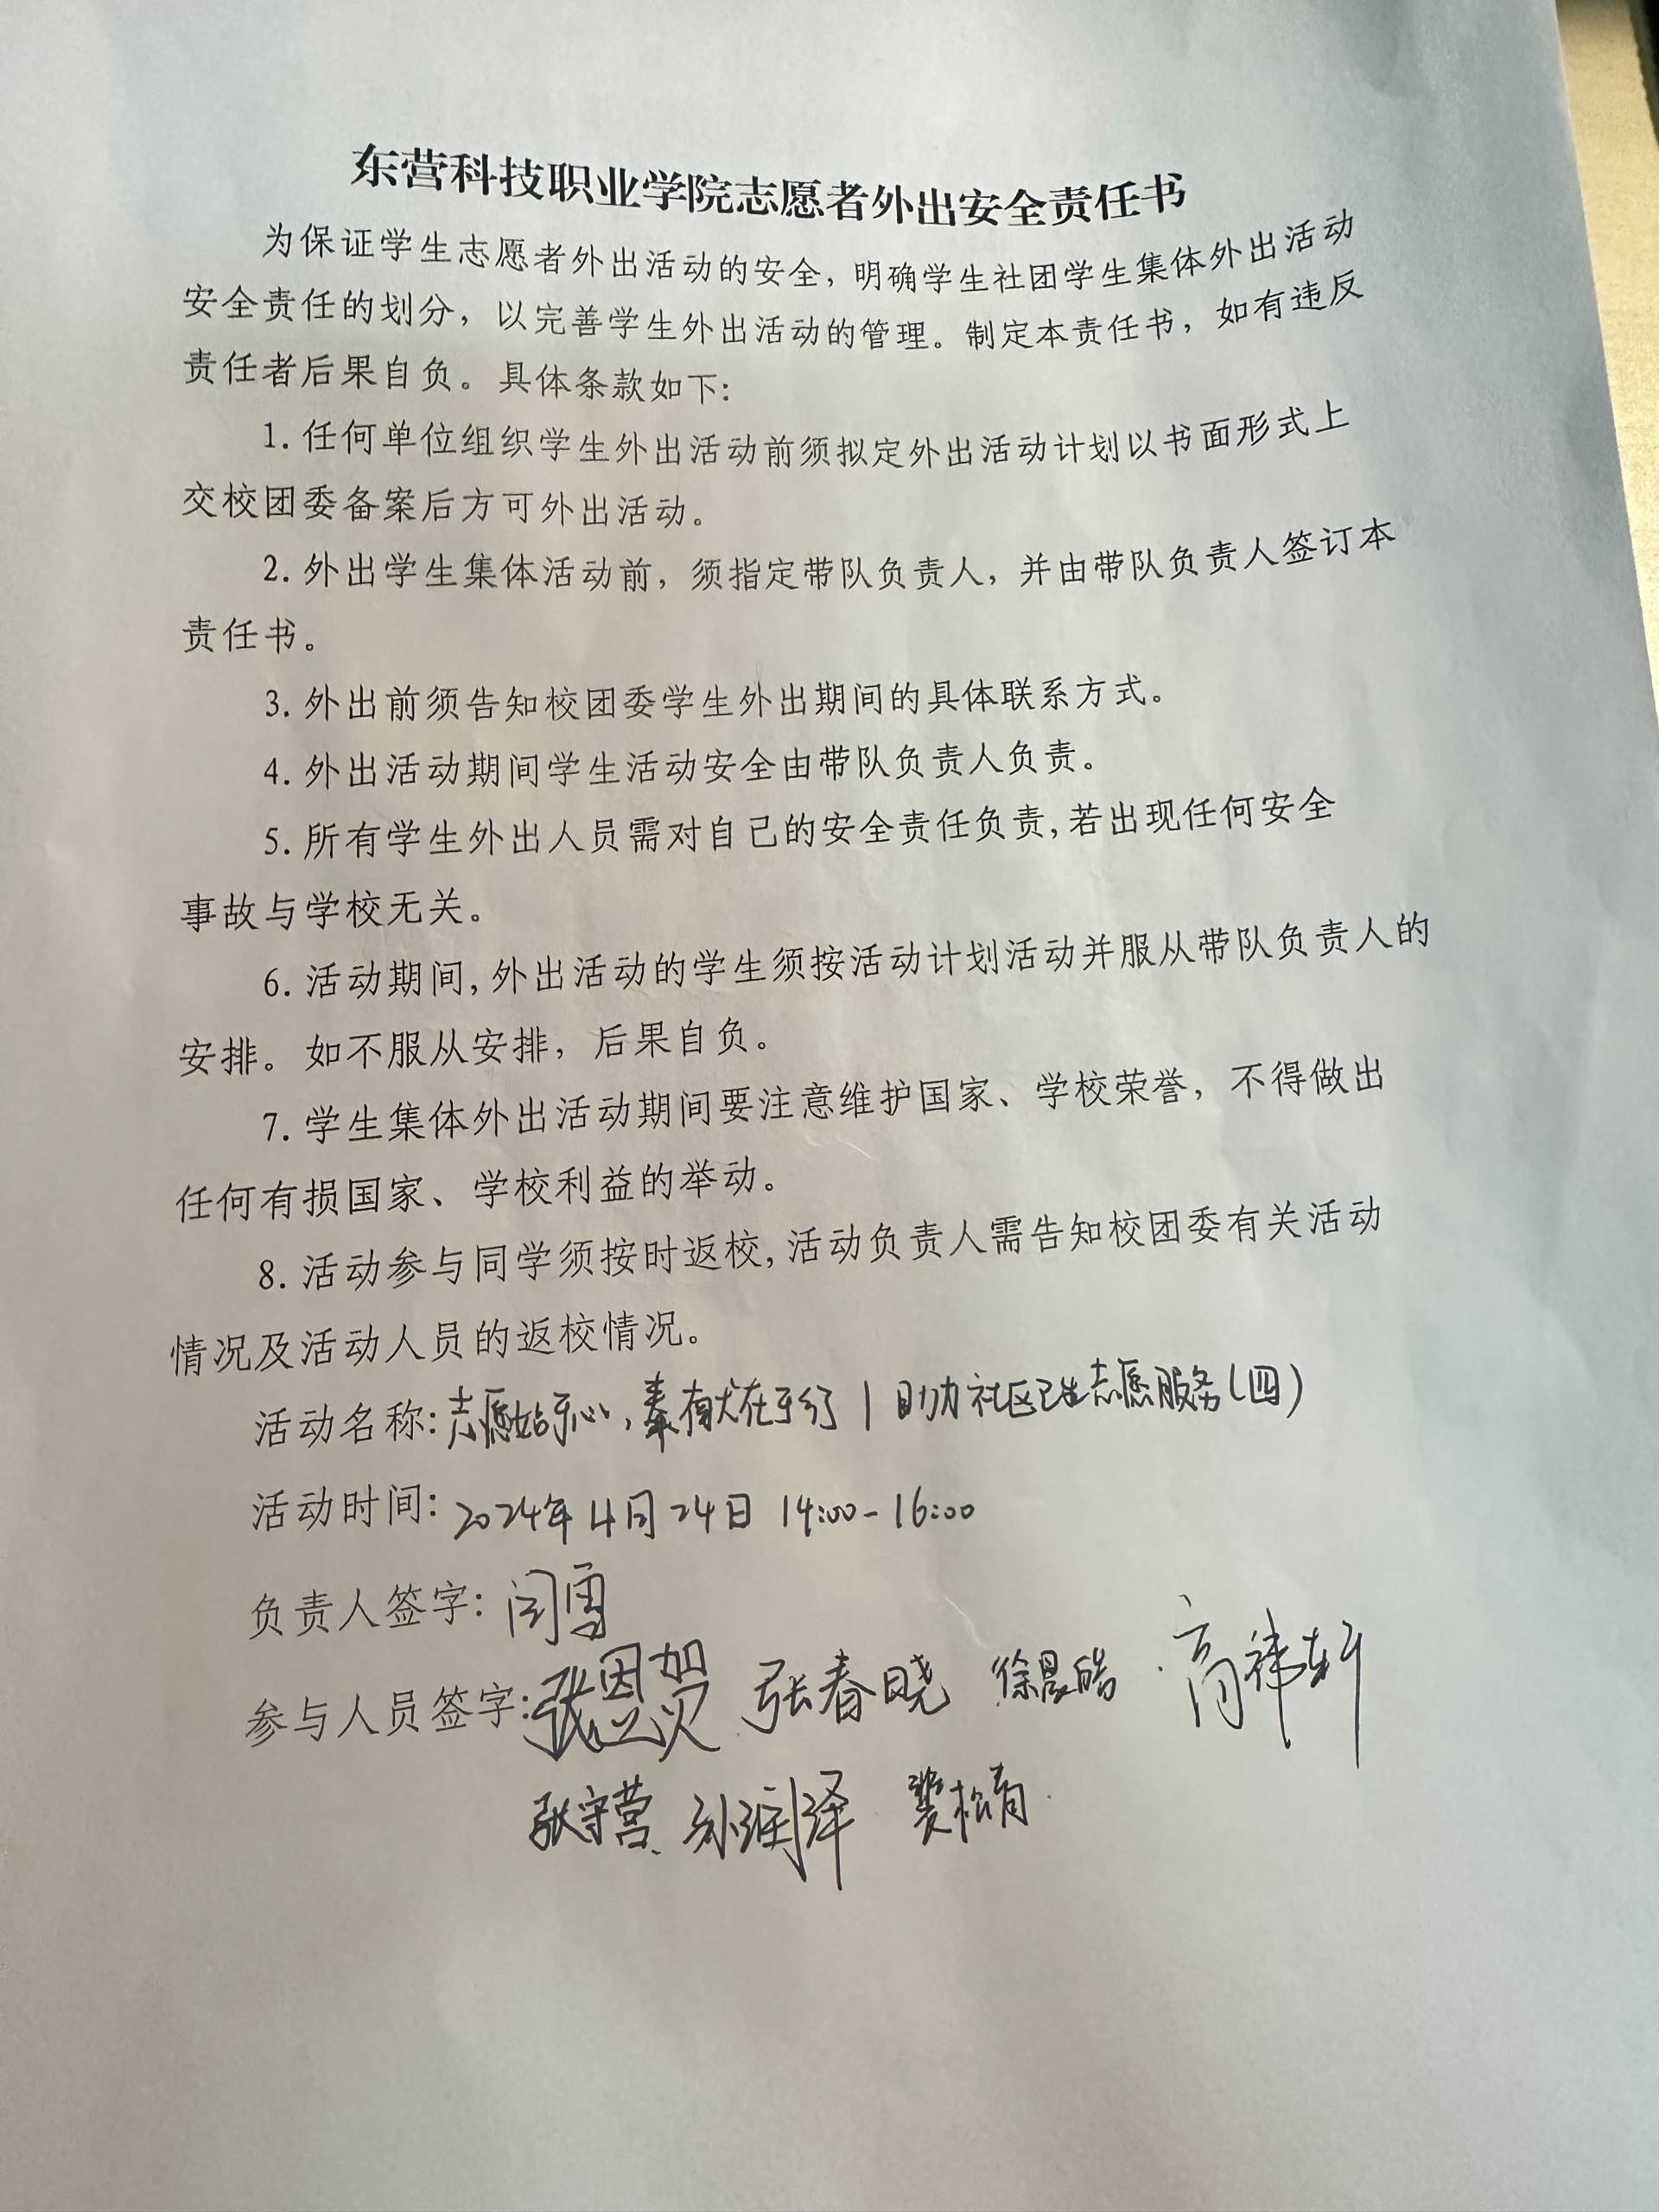 东营科技职业学院志愿者外出安全责任书
为保证学生志愿者外出活动的安全，明确学生社团学生集体外出活动
安全责任的划分，以完善学生外出活动的管理。制定本责任书，如有违反
责任者后果自负。具体条款如下：
1. 任何单位组织学生外出活动前须拟定外出活动计划以书面形式上
交校团委备案后方可外出活动。
2. 外出学生集体活动前，须指定带队负责人，并由带队负责人签订本
责任书。
3. 外出前须告知校团委学生外出期间的具体联系方式。
4. 外出活动期间学生活动安全由带队负责人负责。
5. 所有学生外出人员需对自己的安全责任负责，若出现任何安全
事故与学校无关。
6. 活动期间，外出活动的学生须按活动计划活动并服从带队负责人的
安排。如不服从安排，后果自负。
7. 学生集体外出活动期间要注意维护国家、学校荣誉，不得做出
任何有损国家、学校利益的举动。
8. 活动参与同学须按时返校，活动负责人需告知校团委有关活动
情况及活动人员的返校情况。
活动名称：志愿始于心，奉献在于行 | 助力社区卫生志愿服务（四）
活动时间：2024年4月24日 14:00-16:00
负责人签字：闫雪
参与人员签字：张恩贺 张春晓 徐晨皓 高祎轩
张守营 孙润泽